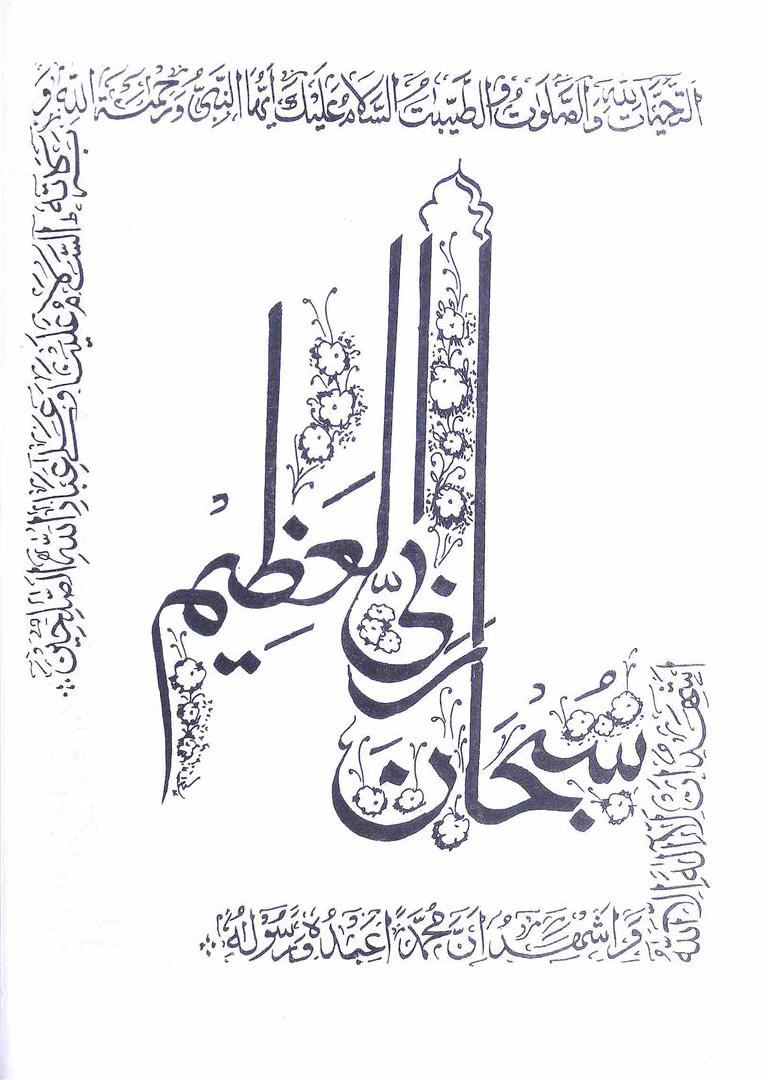 التحيات لله والصلوات والطيبت السلام عليك ايها النبي ورحمة الله و
بركاته السلام علينا وعلى عباد الله الصلحين
سبحان ربي العظيم
اشهد ان لا اله الا الله
و اشهد ان محمدا عبده ورسوله